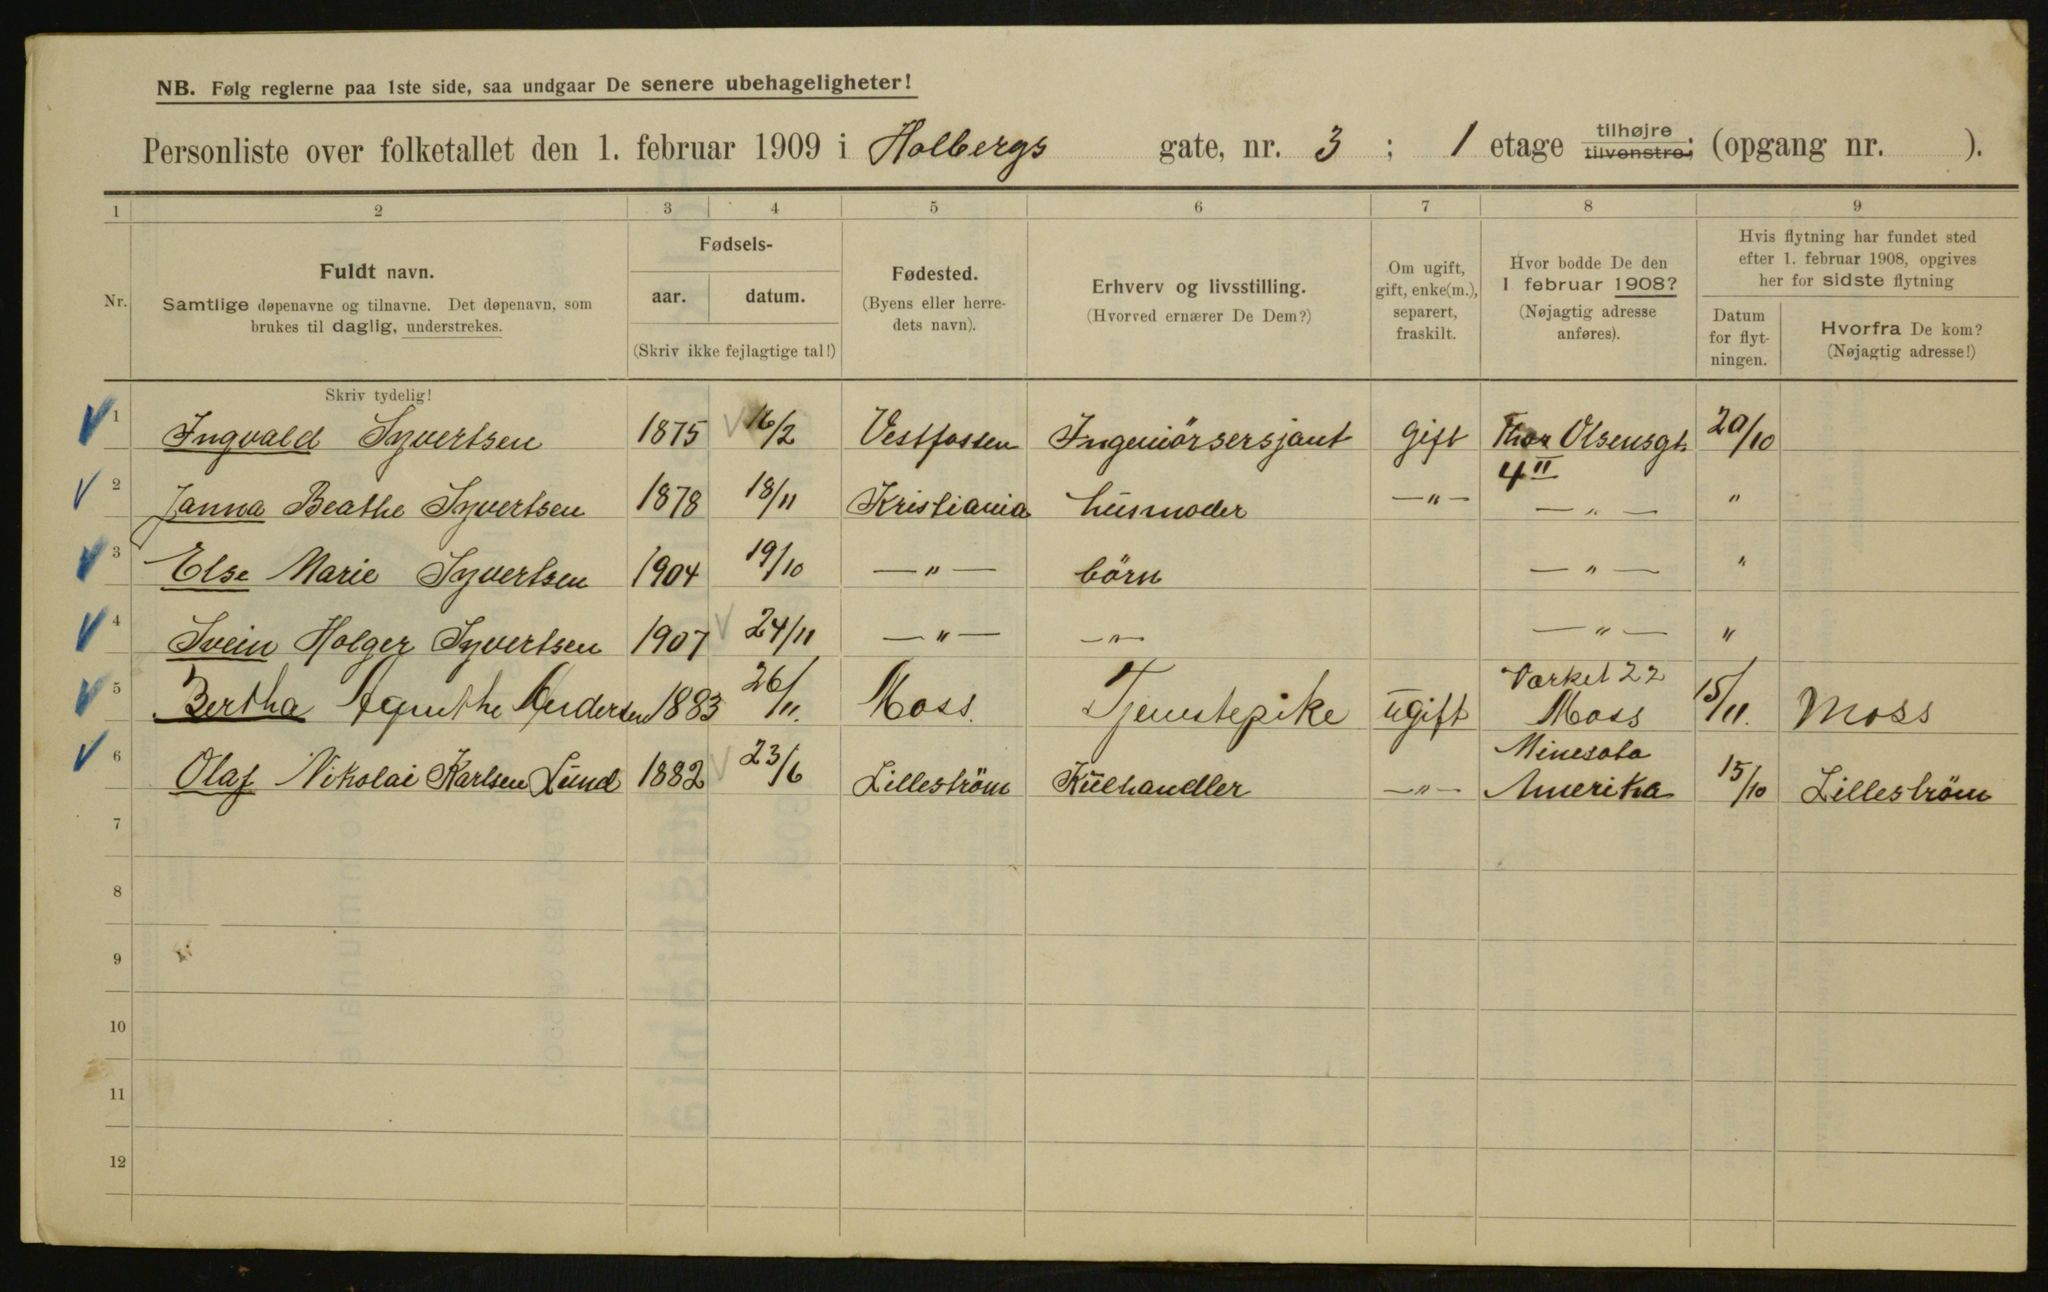 NB. Følg reglerne paa 1ste side, saa undgaar De senere ubehageligheter!
Personliste over folketallet den 1. februar 1909 i Holbergs gate, nr. 3 ; 1 etage tilhøjre tilvenstre; (opgang nr. ).
1 2 3 4 5 6 7 8 9
Nr.
Fuldt navn.
Samtlige døpenavne og tilnavne. Det døpenavn, som
brukes til daglig, understrekes.
Fødsels-
aar. datum.
(Skriv ikke fejlagtige tal!)
Fødested.
(Byens eller herre-
dets navn).
Erhverv og livsstilling.
(Hvorved ernærer De Dem?)
Om ugift,
gift, enke(m.),
separert,
fraskilt.
Hvor bodde De den
1 februar 1908?
(Nøjagtig adresse
anføres).
Hvis flytning har fundet sted
efter 1. februar 1908, opgives
her for sidste flytning
Datum
for flyt-
ningen.
Hvorfra De kom?
(Nøjagtig adresse!)
Skriv tydelig!
1 Ingvald Syvertsen 1875 16/2 Vestfossen Ingeniörsersjant gift Thor Olsensgt. 20/10
4 II
2 Janna Beathe Syvertsen 1878 18/11 Kristiania husmoder —"— —"— "
3 Else Marie Syvertsen 1904 19/10 —"— börn —"— "
4 Svein Holger Syvertsen 1907 24/11 —"— —"— —"— "
Værket 22
5 Bertha Agnethe Andersen 1883 26/11. Moss. Tjenestepike ugift Moss 15/11. Moss
Minesota
6 Olaf Nikolai Karlsen Lund 1882 23/6 Lilleström Kulhandler —"— Amerika 15/10 Lilleström
7
8
9
10
11
12